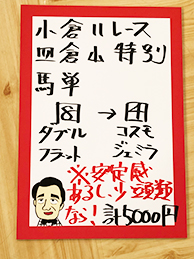 小倉11レース
皿倉山特別
馬単
⑧→④
ダブル コスモ
フラット ジェミラ
※安定感
ある少頭類
な！計5000円